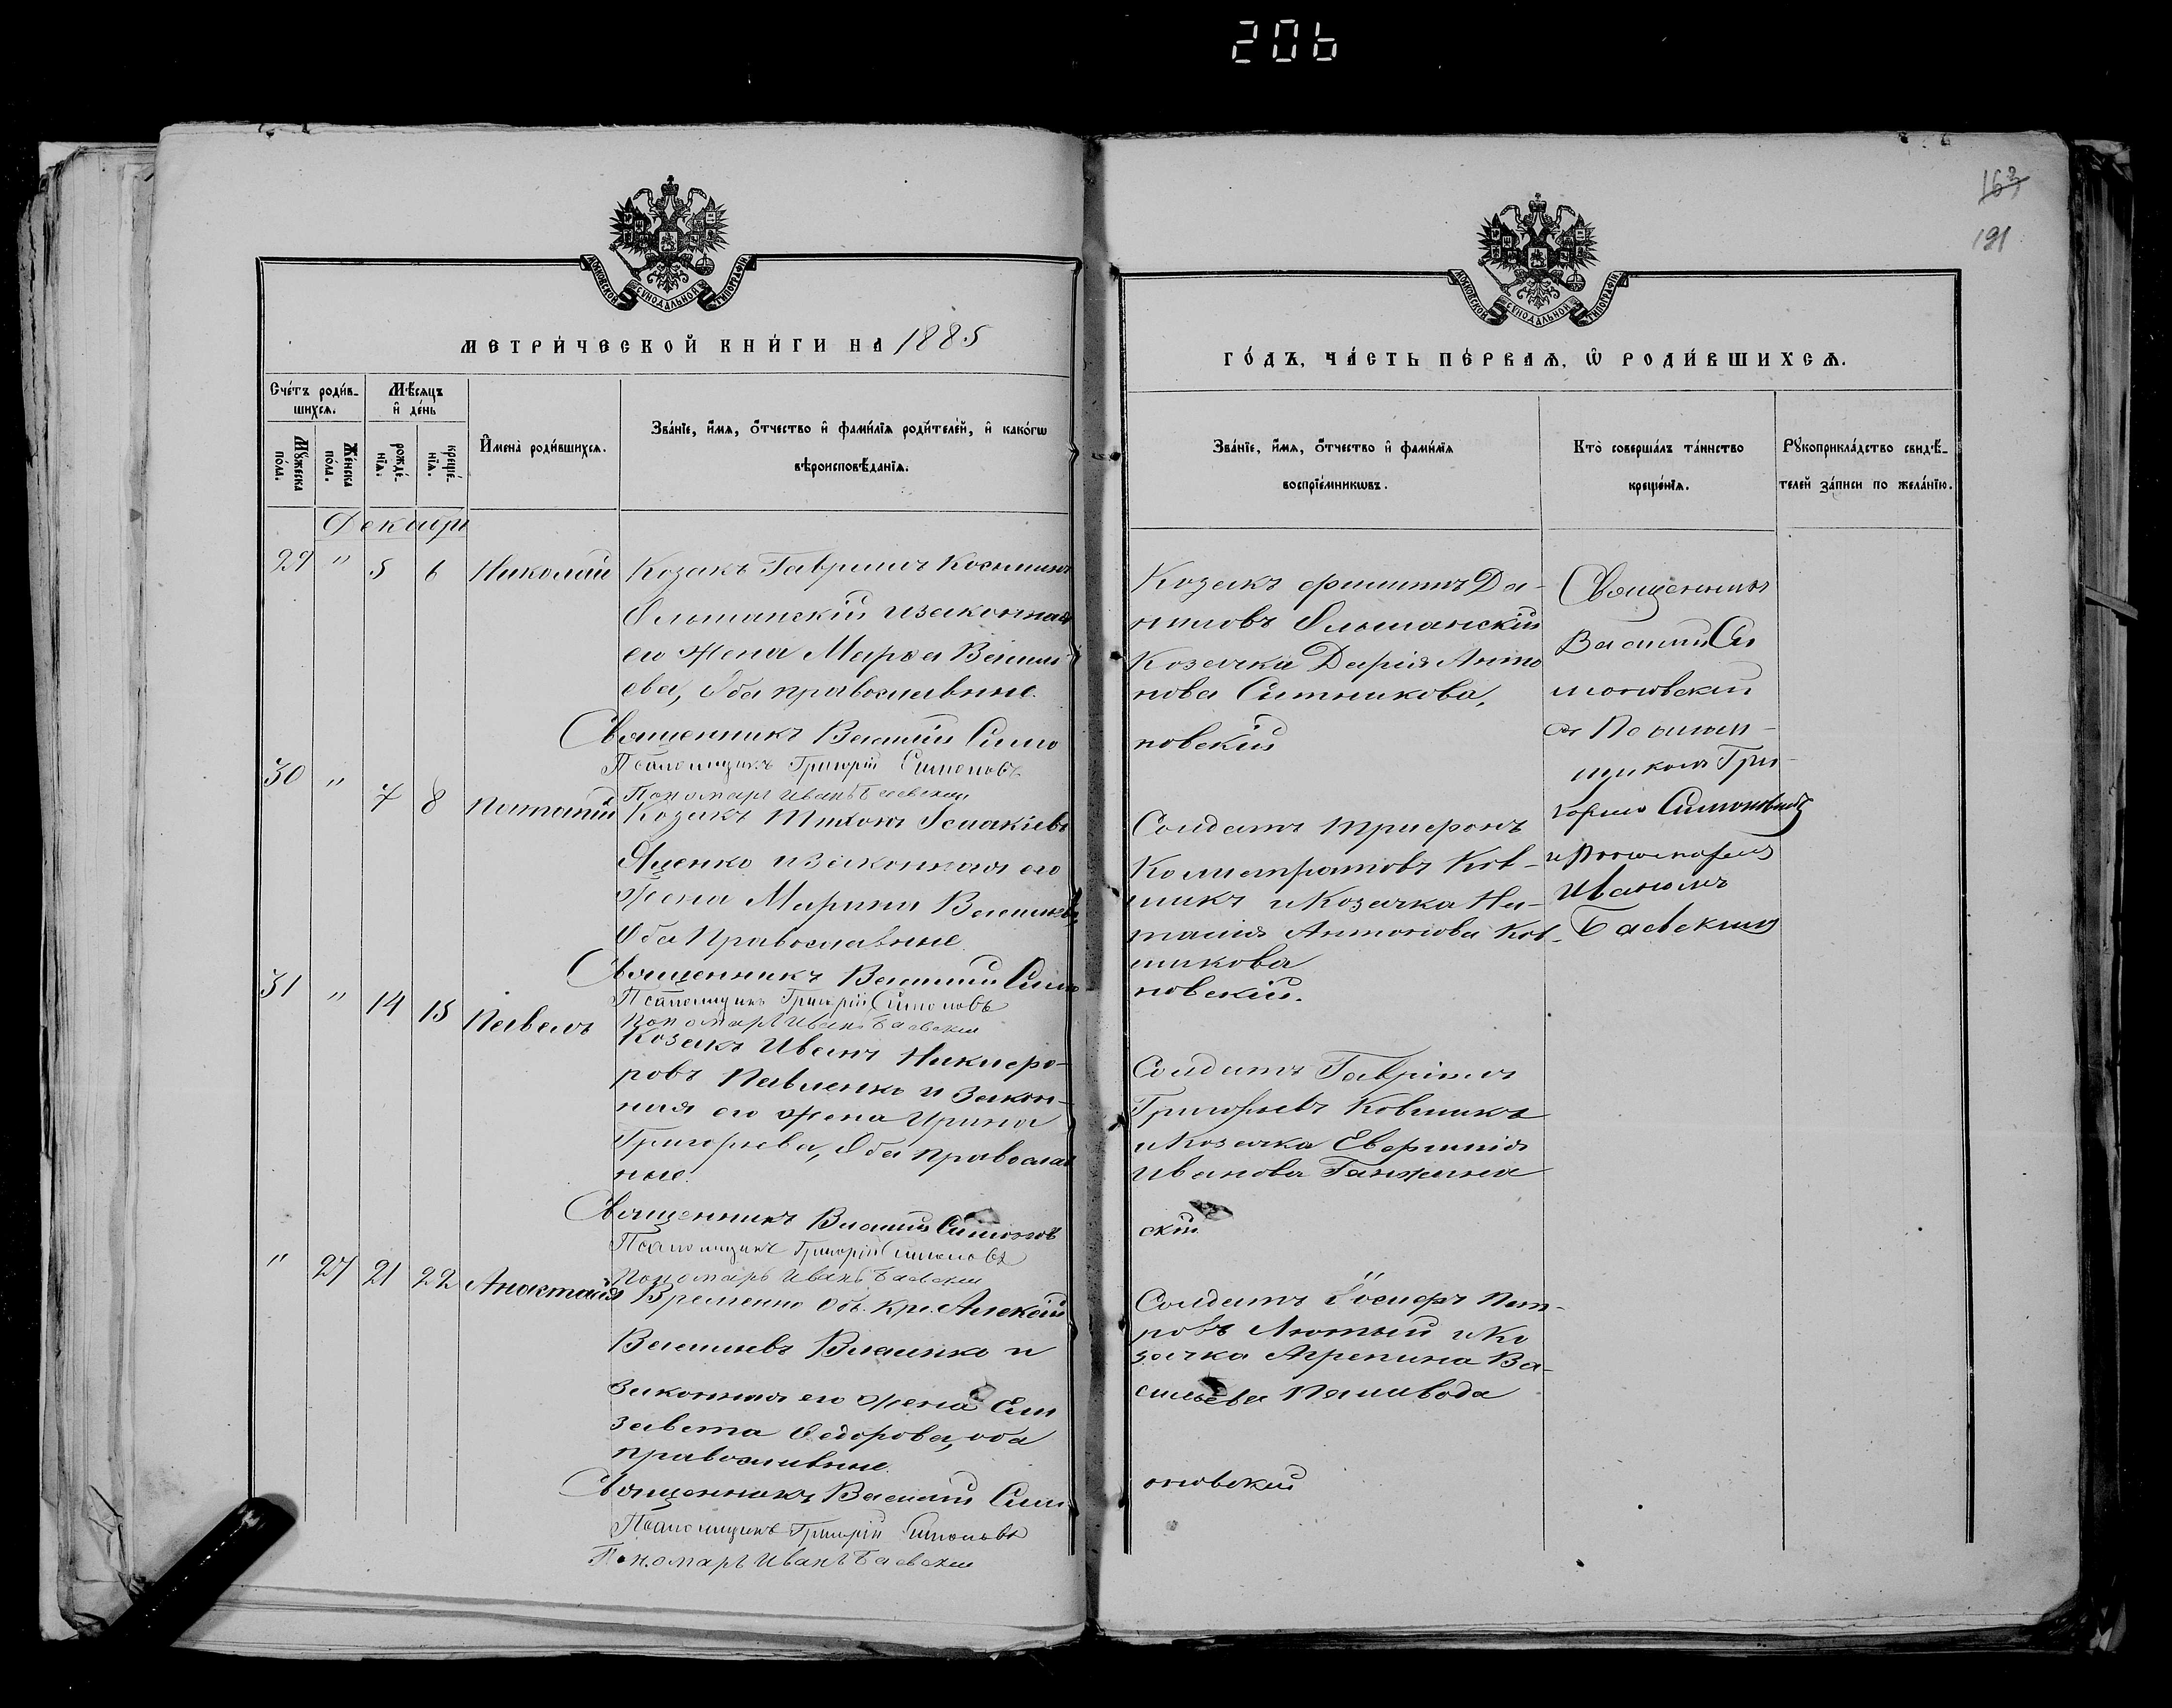 206
163
191
МОСКОВСКОЙ СѴНОДАЛЬНОЙ ТИПОГРАФІИ
МОСКОВСКОЙ СѴНОДАЛЬНОЙ ТИПОГРАФІИ
МЕТРИ́ЧЕСКОЙ КНИ́ГИ НА 1885
ГО́ДЪ, ЧА́СТЬ ПЕ́РВАѦ, Ѡ҆ РОДИ́ВШИХСѦ.
Сче́тъ роди́в-
шихсѧ.
Мꙋ́жеска
по́ла.
Же́нска
по́ла.
Мѣ́сѧцъ
и҆ де́нь
рожде́-
нїѧ.
креще́-
нїѧ.
И҆мена̀ роди́вшихсѧ.
Зва́нїе, и҆́мѧ, ѻ҆́тчество и҆ фами́лїѧ роди́телей, и҆ како́гѡ
вѣроисповѣ́данїѧ.
Зва́нїе, и҆́мѧ, ѻ҆́тчество и҆ фами́лїѧ
воспрїе́мникѡвъ.
Кто̀ соверша́лъ та́инство
креще́нїѧ.
Рꙋкоприкла́дство свидѣ́-
телей за́писи по жела́нїю.
Декабри
29 " 5 6 Николай
Козакъ Гаврiилъ Косминъ
Ольшанскiй и законная
его жена Марѳа Василь
ева, Оба православные.
Священникъ Василiй Симо
новскiй
Псаломщикъ Григорiй Симоновъ
Пономарь Иванъ Баевскiй
Козакъ Филиппъ Да-
ниловъ Ольшанскiй
Козачка Дарiя Анто
нова Ситникова,
Священникъ
Василiй Си
моновскiй
съ Псалом-
щикомъ Гри-
горiемъ Симоновымъ
и Пономаремъ
Иваномъ
Баевскимъ
30 " 7 8 Потапiй
Козакъ Тихонъ Iсаакiевъ
Яценко и законная его
жена Марина Васильева
Оба Православные
Священникъ Василiй Симо
новскiй.
Псаломщикъ Григорiй Симоновъ
Пономарь Иванъ Баевскiй
Солдатъ Трифонъ
Калистратовъ Ков-
шикъ и Козачка На-
талiя Антонова Ков-
шикова
31 " 14 15 Павелъ
Козакъ Иванъ Никифо-
ровъ Павленко и закон-
ная его жена Ирина
Григорьева, Оба православ
ные.
Священникъ Василiй Симонов
скiй
Псаломщикъ Григорiй Симоновъ
Пономарь Иванъ Баевскiй
Солдатъ Гаврiилъ
Григорьевъ Ковшикъ
и Козачка Евфимiя
Иванова Ганжина
" 27 21 22 Анастасiя
Временно Об. кр. Алексiй
Васильевъ Власенко и
законная его жена Ели
завета Ѳедорова, оба
православные.
Священникъ Василiй Сим
оновскiй
Псаломщикъ Григорiй Симоновъ
Пономарь Иванъ Баевскiй
Солдатъ Iосифъ Пет-
ровъ Лютый и Ко
зачка Агрепина Ва-
сильева Паливода